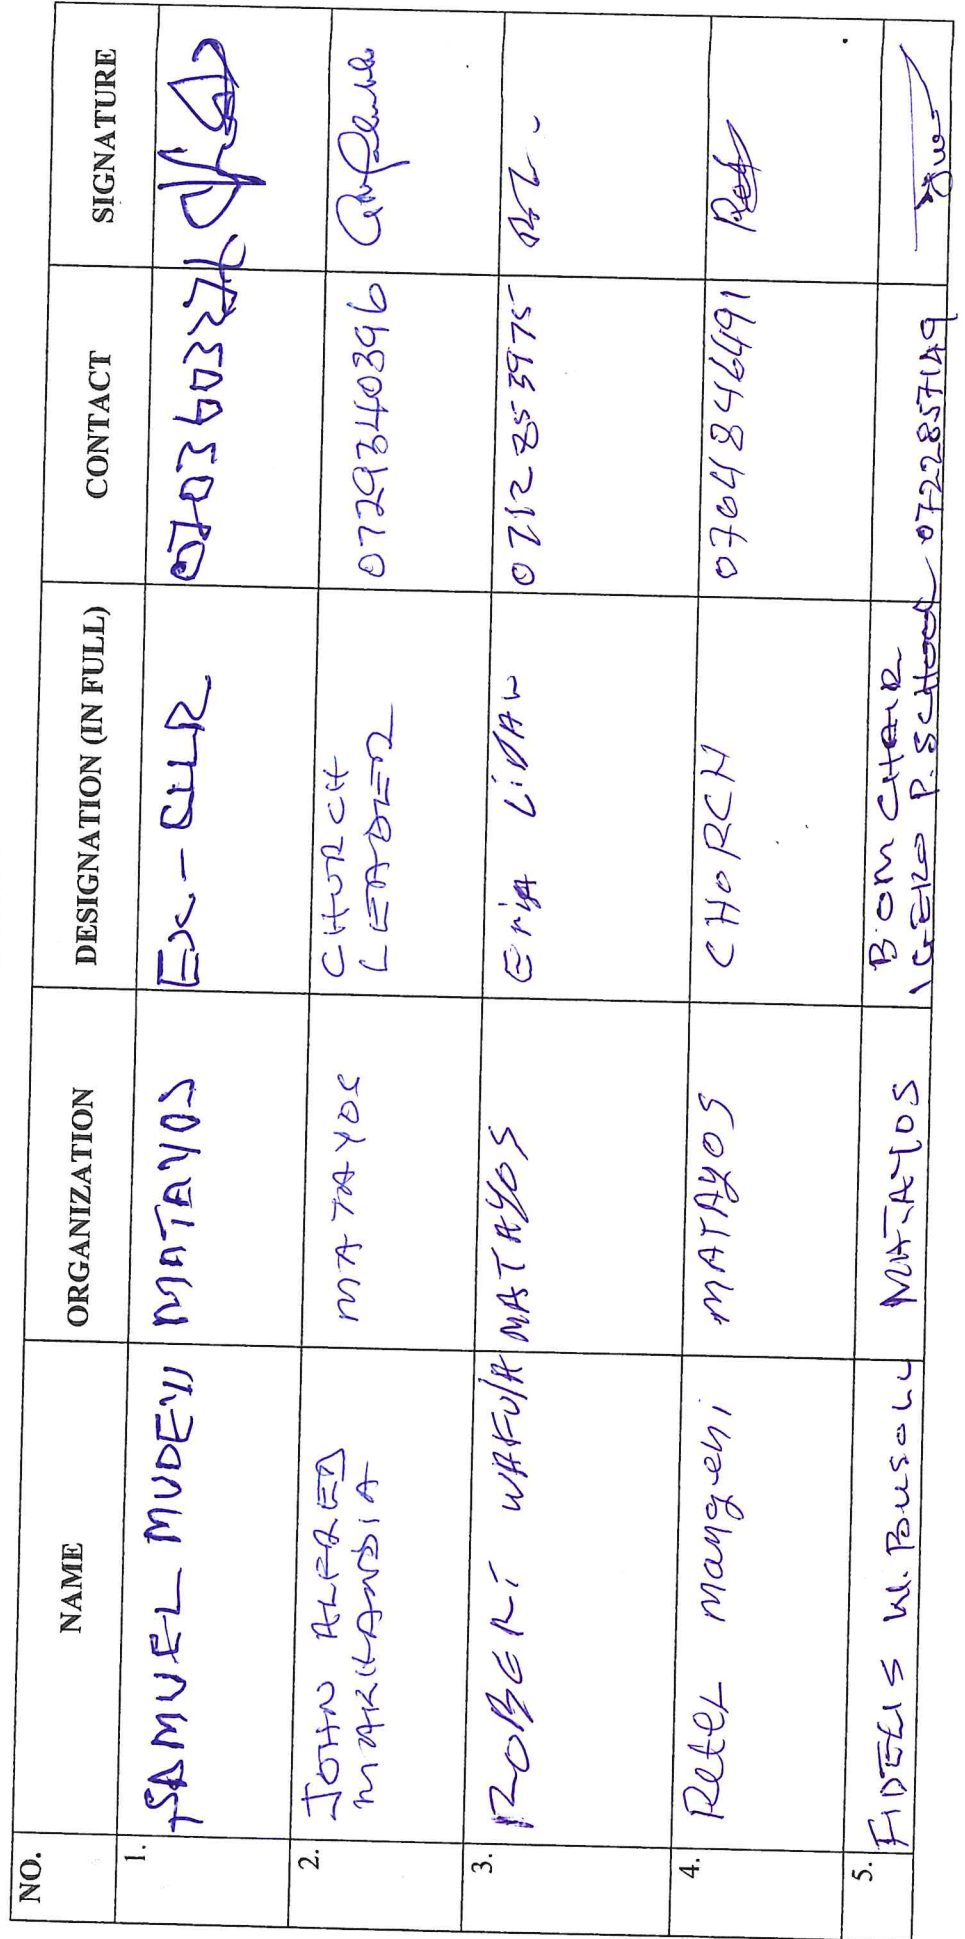 NO. NAME ORGANIZATION DESIGNATION (IN FULL) CONTACT SIGNATURE
1. SAMUEL MUDEYI MATAYOS Ex-CLLR
2. JOHN ALFRED MATAYOS CHURCH 0729340396
LEADER
3. ROBERT WAFULA MATAYOS 0712853975
4. Peter Mangeni MATAYOS CHORCH 0704846491
5. FIDELIS W. MATAYOS B.O.M CHAIR
P. SCHOOL 0722857149